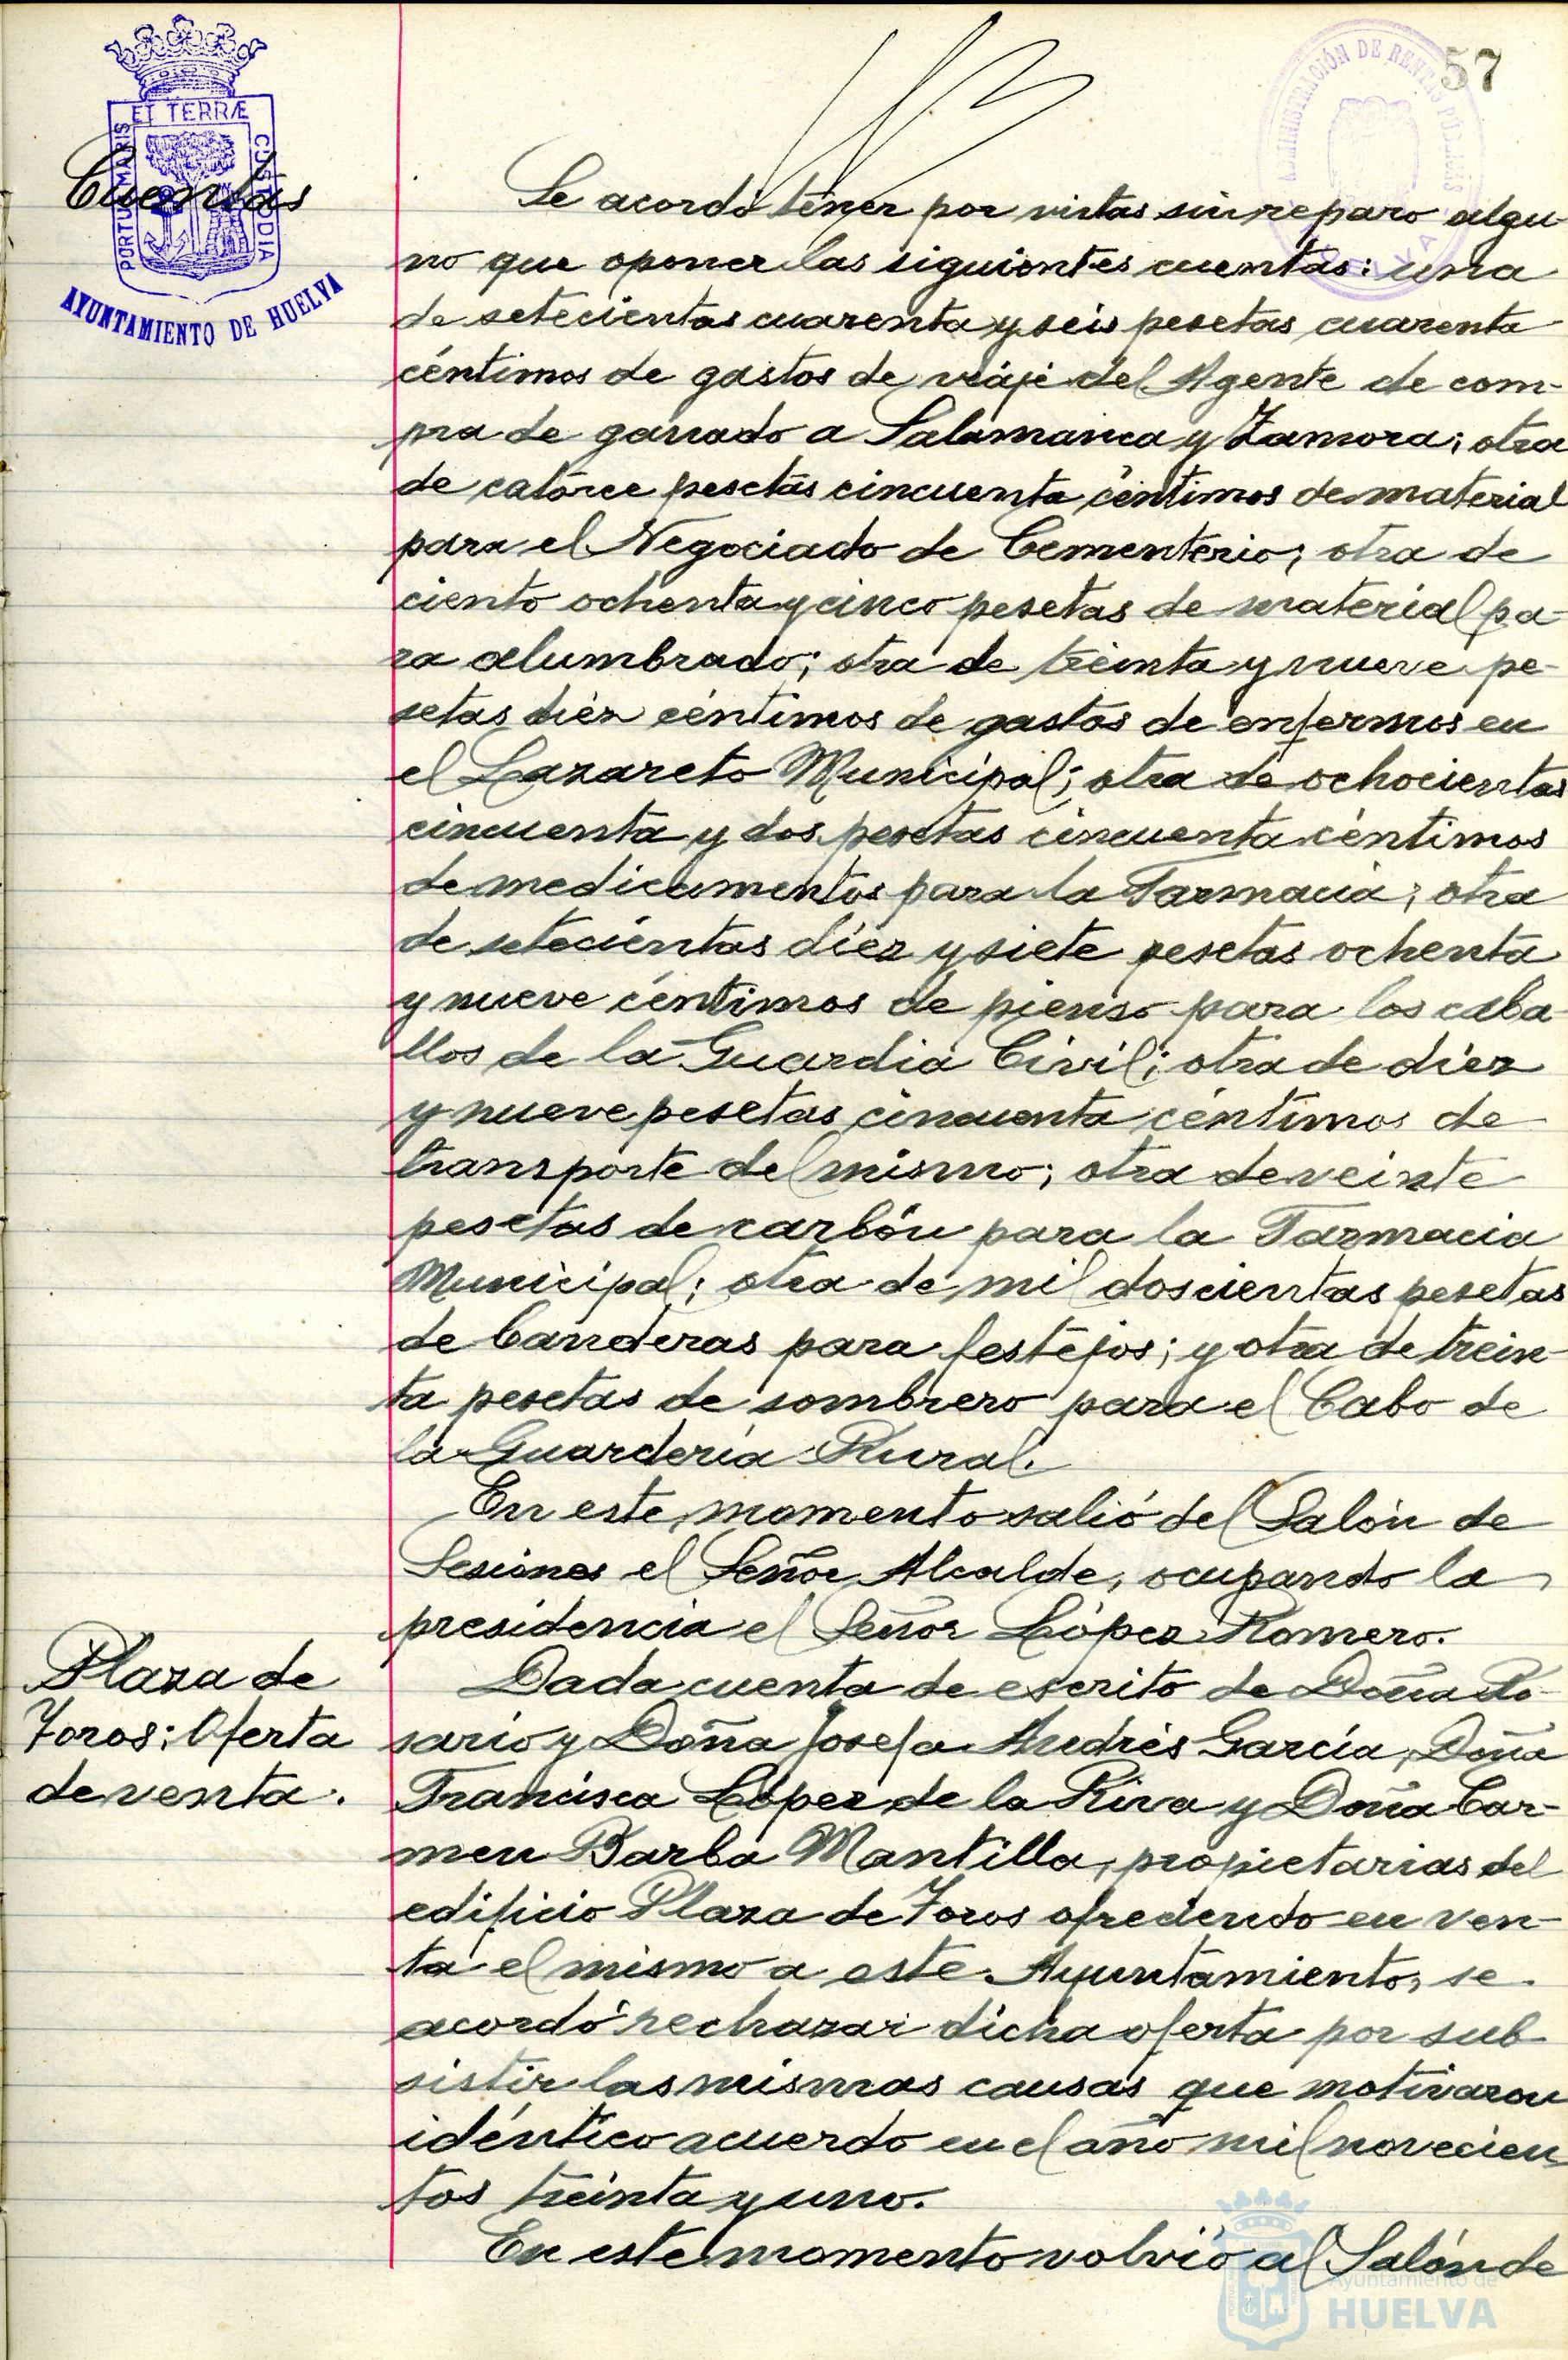 57
ADMINISTRACIÓN DE RENTAS PÚBLICAS
HUELVA
PORTUS MARIS
ET TERRÆ
CUSTODIA
AYUNTAMIENTO DE HUELVA
Cuentas
Se acordó tener por vistas sin reparo algu-
no que oponer las siguientes cuentas: una
de setecientas cuarenta y seis pesetas cuarenta
céntimos de gastos de viaje del Agente de com-
pra de ganado a Salamanca y Zamora; otra
de catorce pesetas cincuenta céntimos de material
para el Negociado de Cementerio; otra de
ciento ochenta y cinco pesetas de material pa-
ra alumbrado; otra de treinta y nueve pe-
setas diez céntimos de gastos de enfermos en
el Lazareto Municipal; otra de ochocientas
cincuenta y dos pesetas cincuenta céntimos
de medicamentos para la Farmacia; otra
de setecientas diez y siete pesetas ochenta
y nueve céntimos de pienso para los caba-
llos de la Guardia Civil; otra de diez
y nueve pesetas cincuenta céntimos de
transporte del mismo; otra de veinte
pesetas de carbón para la Farmacia
Municipal; otra de mil doscientas pesetas
de banderas para festejos; y otra de trein-
ta pesetas de sombrero para el Cabo de
la Guardería Rural.
En este momento salió del Salón de
Sesiones el Señor Alcalde, ocupando la
presidencia el Señor López Romero.
Plaza de
Toros: Oferta
de venta.
Dada cuenta de escrito de Doña Ro-
sario y Doña Josefa Andrés García, Doña
Francisca López de la Riva y Doña Car-
men Barba Mantilla, propietarias del
edificio Plaza de Toros ofreciendo en ven-
ta el mismo a este Ayuntamiento, se
acordó rechazar dicha oferta por sub-
sistir las mismas causas que motivaron
idéntico acuerdo en el año mil novecien-
tos treinta y uno.
En este momento volvió al Salón de
Ayuntamiento de
HUELVA